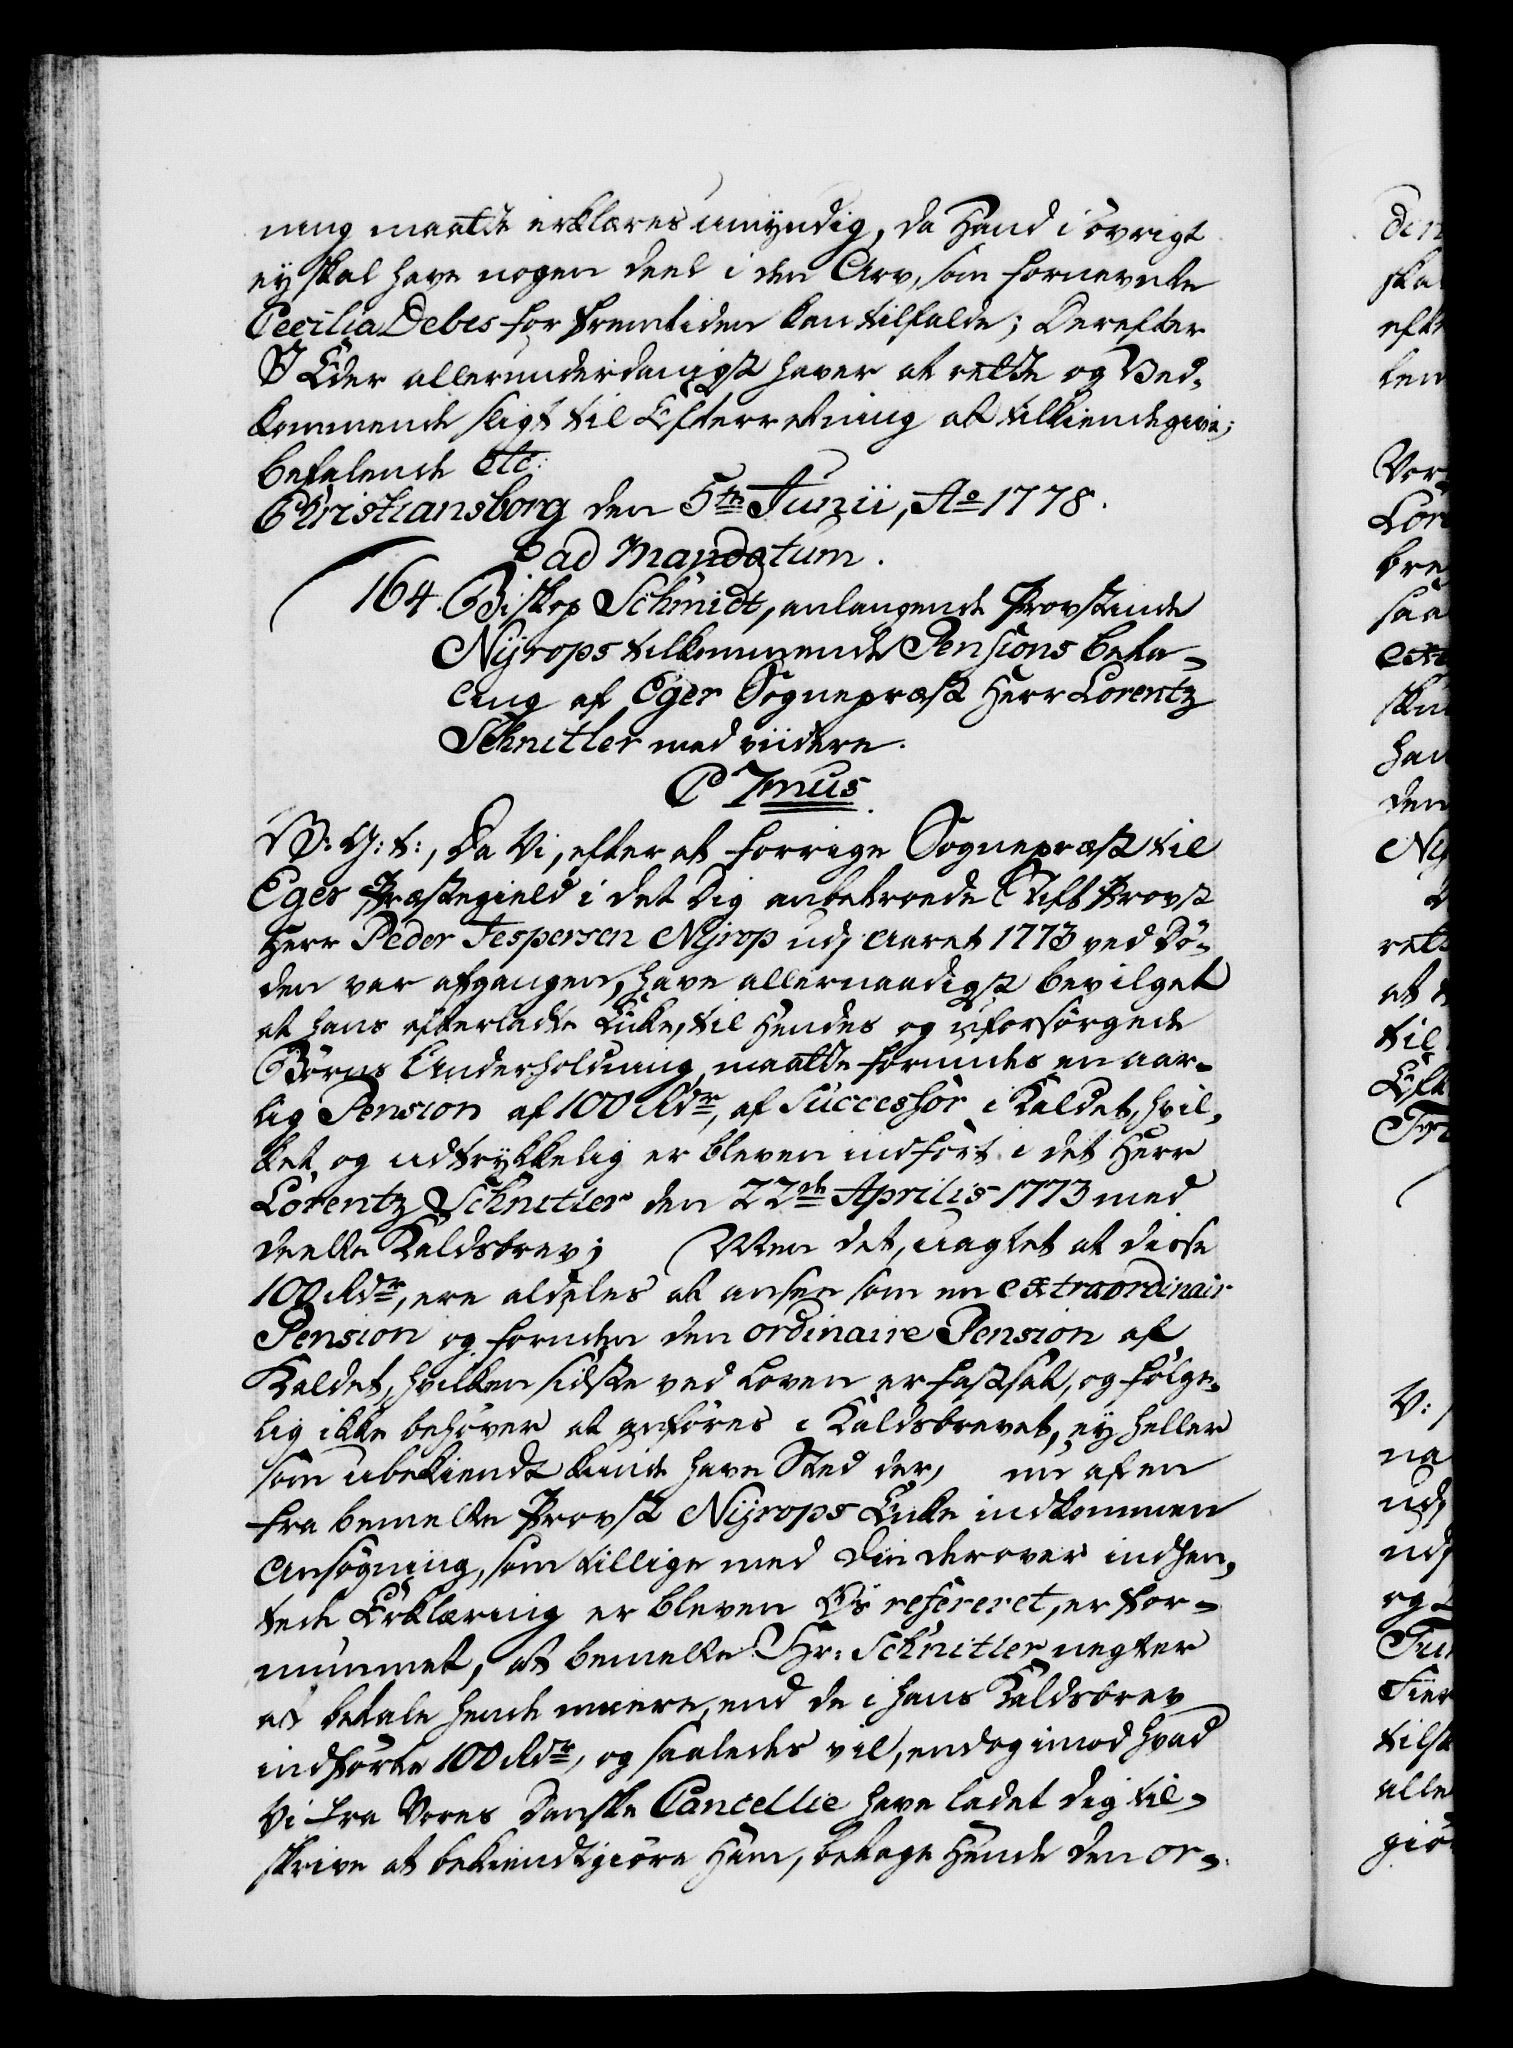 ning maatte erklæres umyndig, da Hand i øvrigt
ey skal have nogen deel i den Arv, som fornevnte
Cecilia Debes for Fremtiden kan tilfalde; Derefter
I Eder allerunderdanigst haver at rette og Ved-
kommende sligt til Efterretning at tilkiendegive;
befalende etc:
Christiansborg den 5te Junii, Ao 1778.
ad Mandatum.
164 Biskop Schmidt, anlangende Provstinde
Nyrops tilkommende Pensions beta-
ling af Eger Sognepræst Herr Lorentz
Schnitler med viidere.
C 7mus
V: G: t:, Da Vi, efter at forrige Sognepræst til
Eger Præstegield i det Dig anbetroede Stift Provst
Herr Peder Jespersen Nyrop udj Aaret 1773 ved Dø-
den var afgangen, have allernaadigst bevilget
at hans efterladte Enke, til Hendes og uforsørgede
Børns Underholdning, maatte forundes en aar-
lig Pension af 100 Rdr, af Successor i Kaldet, hvil-
ket og udtrykkelig er bleven indført i det Herr
Lorentz Schnitler den 22de Aprilis 1773 med
deelte Kaldsbrev; Men det, uagtet at disse
100 Rdr, ere aldeles at ansee som en extraordinair
Pension og foruden den ordinaire Pension af
Kaldet, hvilken sidste ved Loven er fastsat, og følge-
lig ikke behøver at anføres i Kaldsbrevet, ey heller
som ubekiendt kunde have Sted der, nu af en
fra bemelte Provst Nyrops Enke indkommen
Ansøgning, som tillige med Din derover indhen-
tede Erklæring er bleven Os refereret, er for-
nummet, at bemelte Hr: Schnitler negter
at betale hende meere, end de i hans Kaldsbrev
indførte 100 Rdr, og saaledes vil, endog imod hvad
Vi fra Vores Danske Cancellie have ladet Dig til-
skrive at bekiendtgiøre Ham, betage Hende den or-